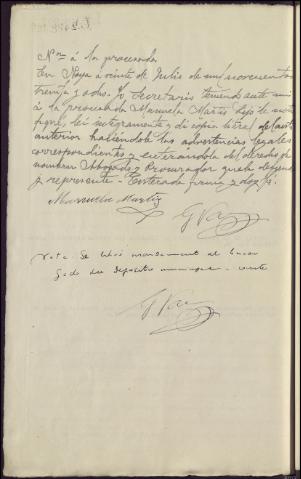 Non á la procesada
En Noya á veinte de Julio de mil novecientos
treinta y dos. Yo Secretario teniendo ante mi
á la procesada Manuela Martiz hijo le noti
fiqué, leí integramente y dí cópia literal del auto
anterior haciéndole las advertencias legales
correspondientes y enterándola del derecho de
nombrar Abogado y Procurador que la defienda
y represente - Enterada firma y doy fé.
Manuela Martiz
Nota Se libró mandamiento al
del depósito municipal